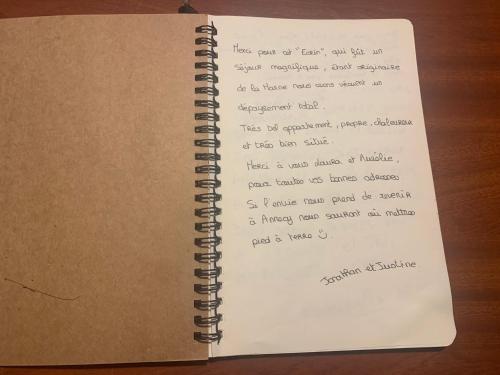 Merci pour cet "Ecrin", qui fût un
séjour magnifique, étant originaire
de la Marne nous avons vécu un
dépaysement total.
Très bel appartement, propre, chaleureux
et très bien situé.
Merci à vous Laura et Aurélie,
pour toutes vos bonnes adresses
Si l'envie nous prend de revenir
à Annecy nous sauront où mettre
pied à terre
Jonathan et Justine